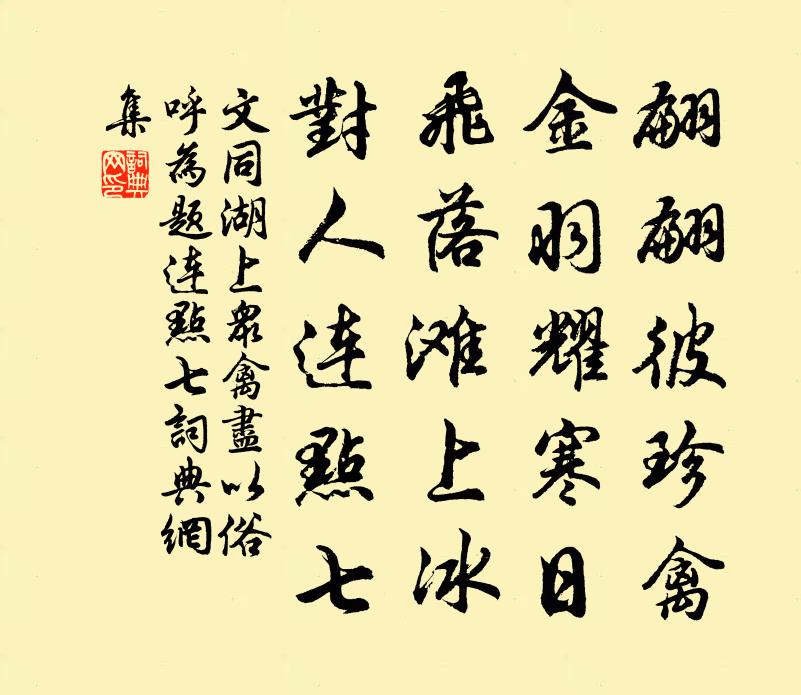 翩翩彼珍禽
金羽耀寒日
飛落滩上冰
對人連點七
文同湖上眾禽盡以俗
呼為題連點七詞典網
集
詞典網印